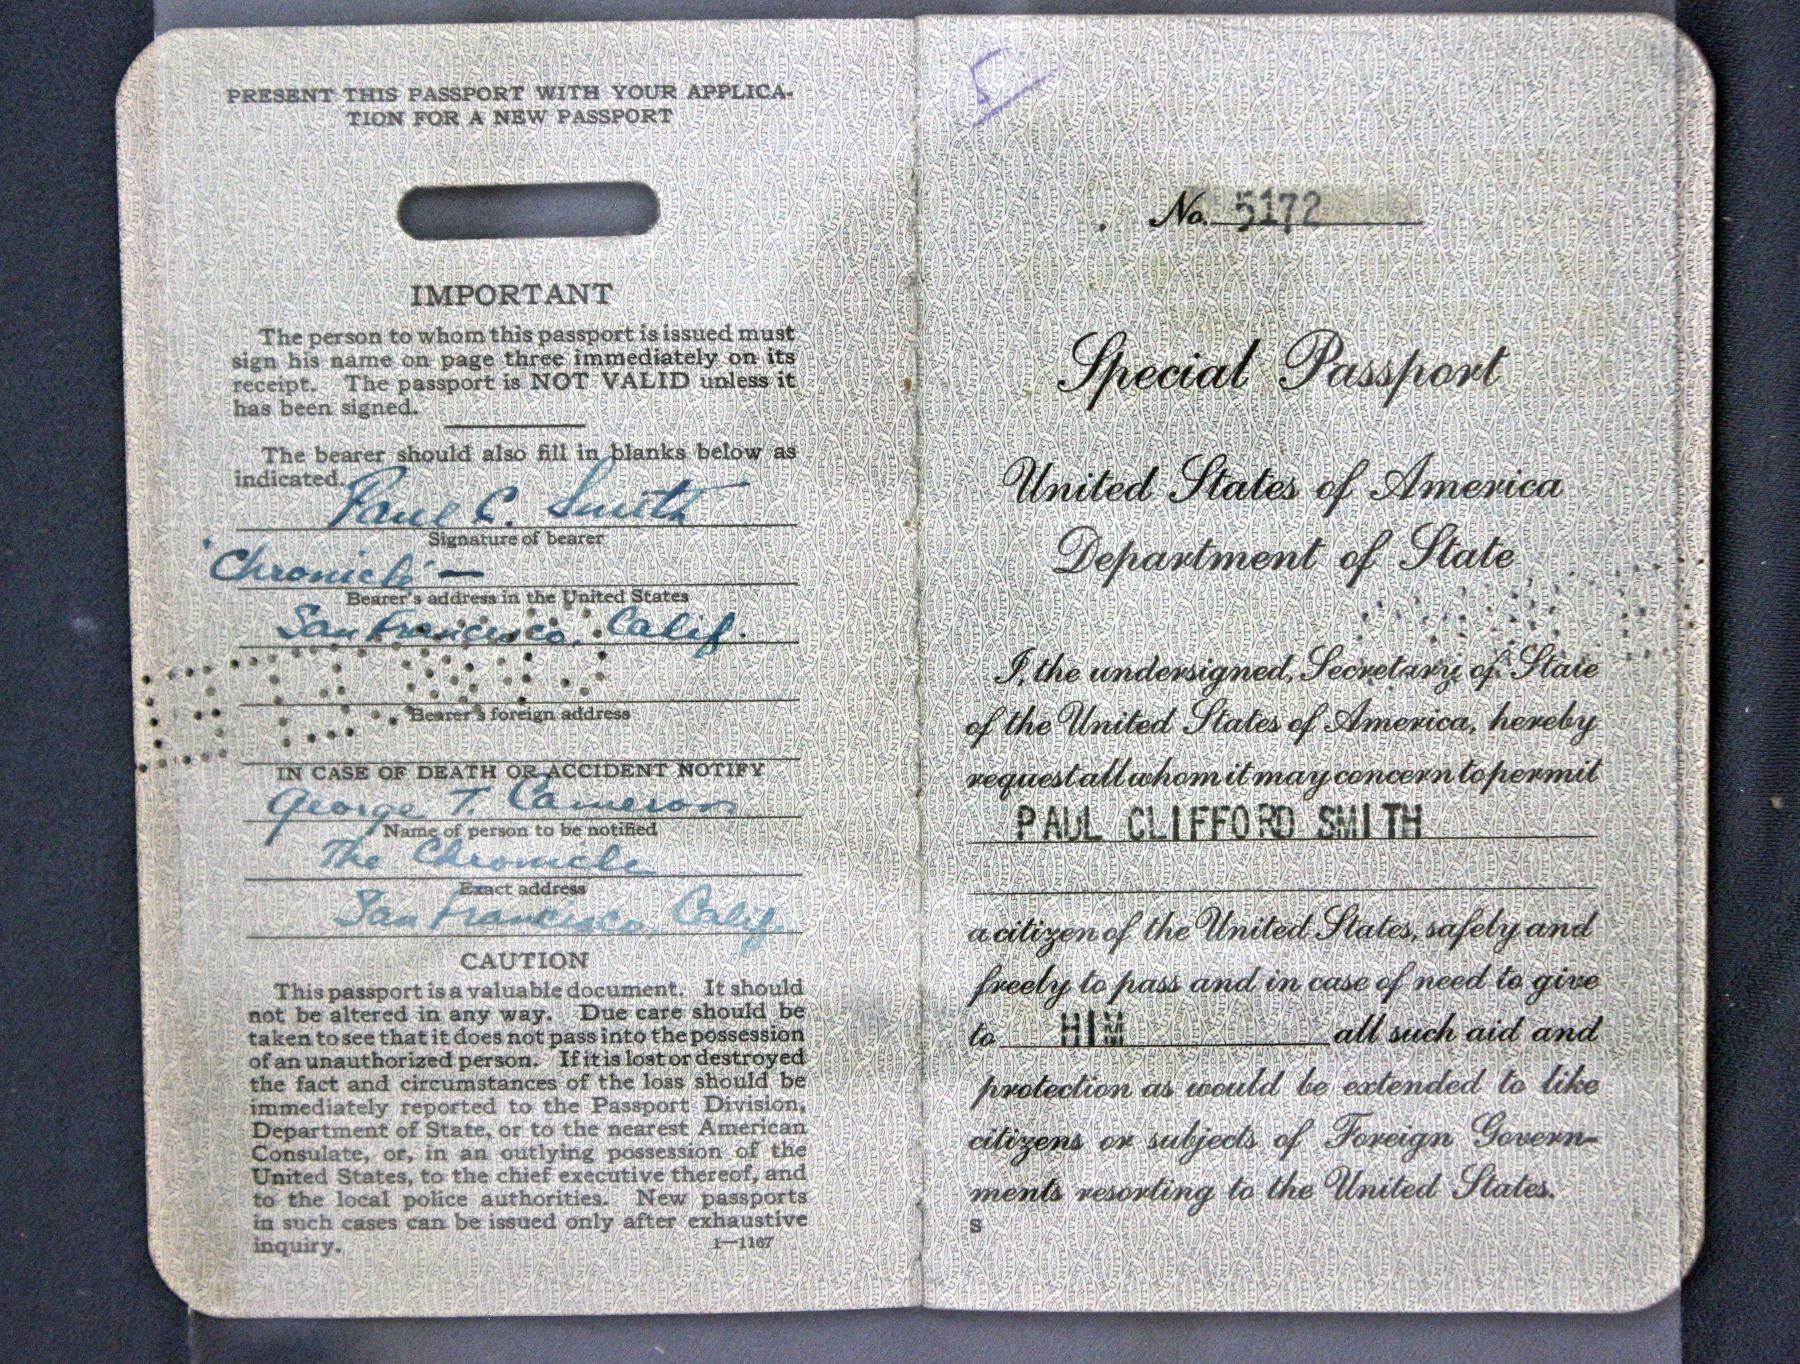 PRESENT THIS PASSPORT WITH YOUR APPLICA-
TION FOR A NEW PASSPORT
IMPORTANT
The person to whom this passport is issued must
sign his name on page three immediately on its
receipt. The passport is NOT VALID unless it
has been signed.
The bearer should also fill in blanks below as
indicated.
Paul C. Smith
Signature of bearer
"Chronicle" —
Bearer's address in the United States
San Francisco, Calif.
Bearer's foreign address
IN CASE OF DEATH OR ACCIDENT NOTIFY
George T. Cameron
Name of person to be notified
The Chronicle
Exact address
San Francisco, Calif.
CAUTION
This passport is a valuable document. It should
not be altered in any way. Due care should be
taken to see that it does not pass into the possession
of an unauthorized person. If it is lost or destroyed
the fact and circumstances of the loss should be
immediately reported to the Passport Division,
Department of State, or to the nearest American
Consulate, or, in an outlying possession of the
United States, to the chief executive thereof, and
to the local police authorities. New passports
in such cases can be issued only after exhaustive
inquiry.
1—1167
No. 5172
Special Passport
United States of America
Department of State
I, the undersigned, Secretary of State
of the United States of America, hereby
request all whom it may concern to permit
PAUL CLIFFORD SMITH
a citizen of the United States, safely and
freely to pass and in case of need to give
to HIM all such aid and
protection as would be extended to like
citizens or subjects of Foreign Govern-
ments resorting to the United States.
S